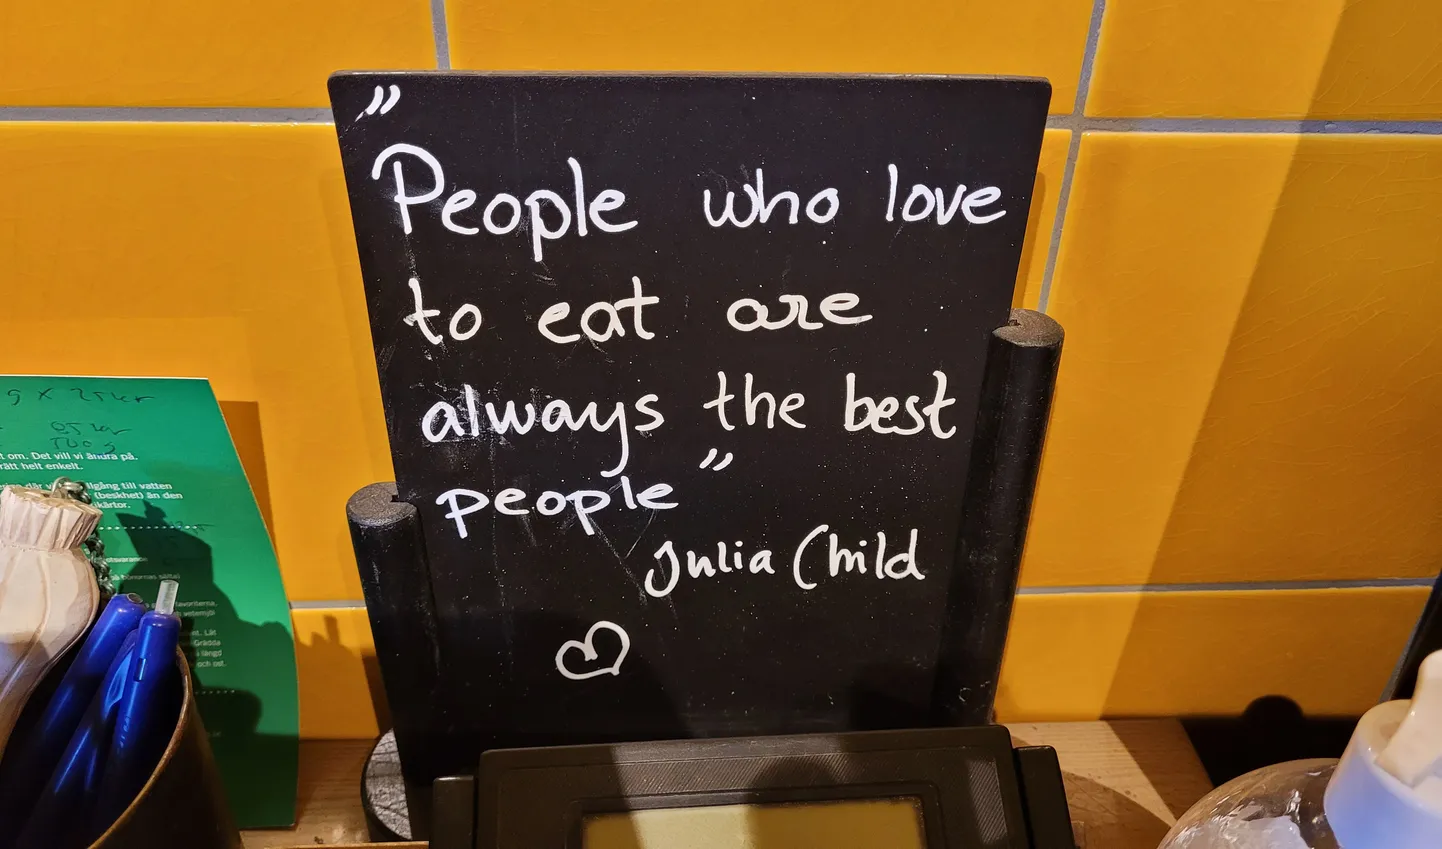 "
People who love
to eat are
always the best
people"
Julia Child
t om. Det vill vi ändra på.
rätt helt enkelt.
till vatten
(beskhet) än den
och ost.